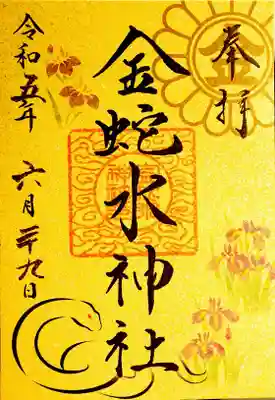 奉拝
金
金蛇水神社
令和五年
六月二十九日